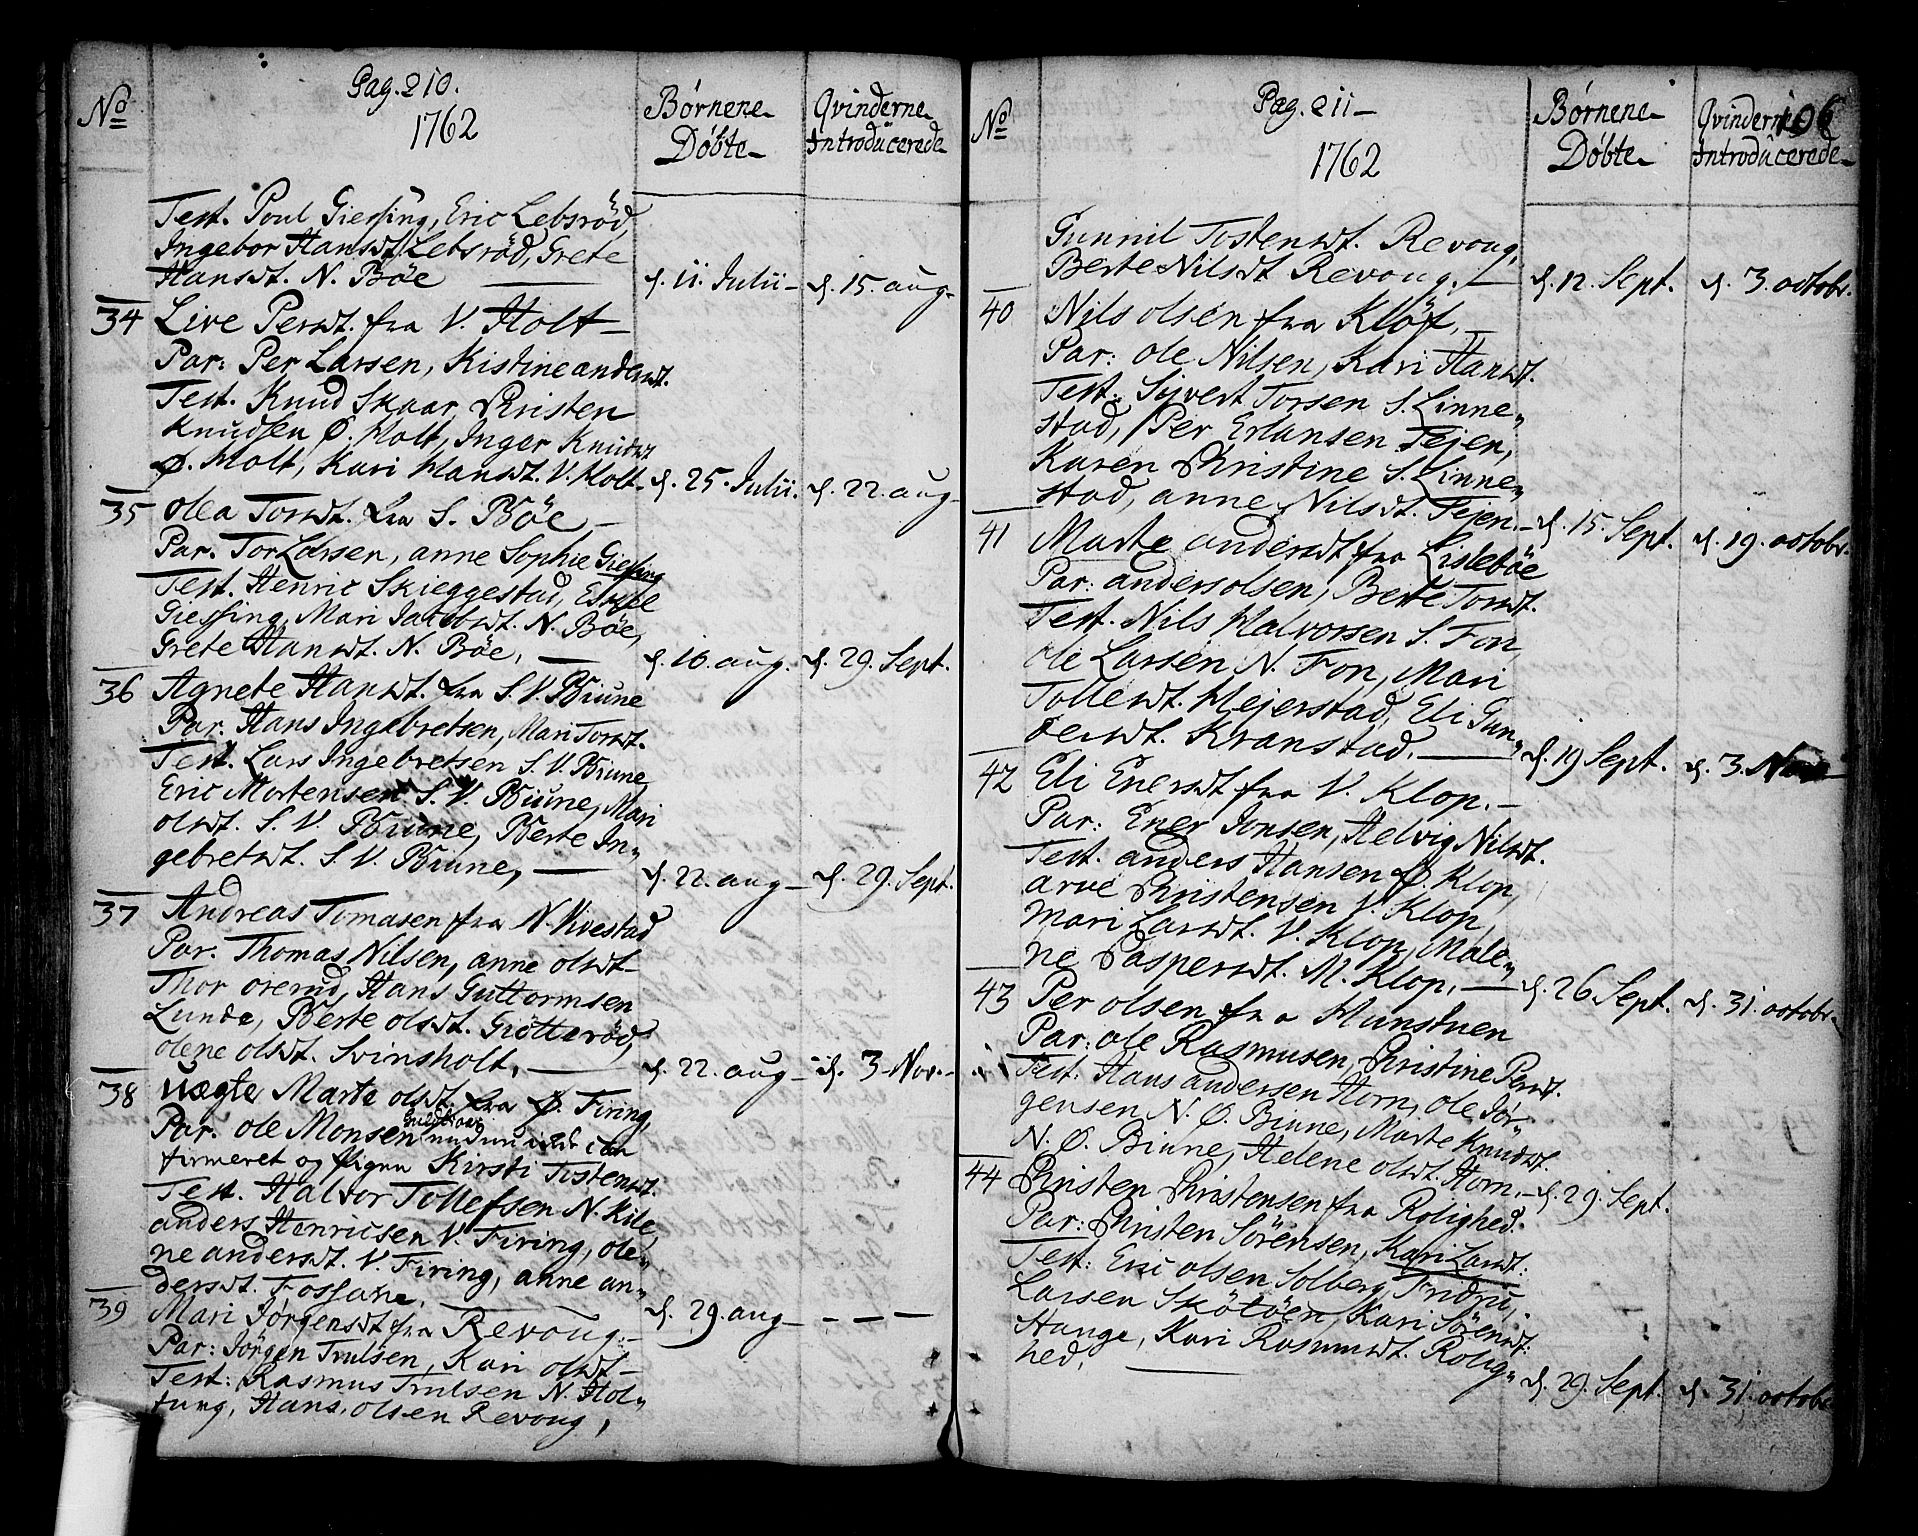 Pag. 210.
No
1762
Børnene Døbte
Qvinderne Introducerede
Test. Poul Giessing, Eric Lebsröd,
Ingebor Hansdt. Lebsröd, Grete
Hansdt. N. Böe d. 11. Julii d. 15. aug
34 Live Persdt. fra V. Holt
Par: Per Larsen, Kistine andersdt.
Test. Knud Skaar, Christen
Knudsen Ø. Holt, Inger Knudsdt
Ø. Holt, Kari Hansdt. V. Holt d. 25. Julii. d. 22. aug
35 Olea Torsdt. fra S. Böe
Par. Tor Larsen, anne Sophie Giessing
Test. Henric Skieggestad,
Giessing, Mari Jacobsdt. N. Böe,
Grete Hansdt. N. Böe, d. 16. aug. d. 29. Sept.
36 Agnete Hansdt. fra S. V. Biune
Par. Hans Ingebretsen, Mari Torsdt.
Test. Lars Ingebretsen S. V. Biune
Eric Mortensen S. V. Biune, Mari
olsdt. S. V. Biune, Berte In„
gebretsdt. S. V. Biune, d. 22. aug d. 29. Sept.
37 Andreas Tomasen fra N. Vivestad
Par. Thomas Nilsen, anne olsdt
Thor overud, Hans Guttormsen
Lunde, Berte olsdt. Giötteröd,
olene olsdt. Svinsholt, d. 22. aug d. 3. Nov.
38 uægte Marte olsdt. fra Ø. Firing,
Par. ole Monsen
firmeret og pigen Kirsti Tostensdt.
Test. Halvor Tollefsen N. Kile,
anders Henricsen V. Firing, ole„
ne andersdt. V. Firing, anne an„
dersdt. Fossane. d. 29. aug
39 Mari Jørgensdt fra Revoug.
Par: Jörgen Trulsen, Kari olsdt
Test: Rasmus Trulsen N. Hol„
tung, Hans olsen Revoug,
Pag. 211
106
No
1762
Børnene Døbte
Qvinderne Introducerede
Gunnil Tostensdt. Revoug,
Berte Nilsdt Revoug. d. 12. Sept. d. 3. octobr.
40 Nils olsen fra Klöf,
Par: ole Nilsen, Kari Hansdt.
Test. Syvert Torsen S. Linne„
stad, Per Erlansen Fejen,
Karen Christine S. Linne„
stad, anne Nilsdt. Fejen. d. 15. Sept. d. 19. octobr.
41 Marte andersdt fra Lisleböe
Par: anders olsen, Berte Torsdt.
Test. Nils Halvorsen S. Fon,
ole Larsen N. Fon, Mari
Tollesdt. Hejerstad, Eli Gun„
dersdt. Kranstad. d. 19 Sept. d. 3. Nov
42 Eli Enersdt fra V. Klop.
Par: Ener Jonsen, Helvig Nilsdt.
Test. anders Hansen Ø. Klop,
arve Christensen V. Klop
Mari Larsdt. V. Klop, Male„
ne Caspersdt. M. Klop, d. 26. Sept. d. 31. octobr.
43 Per olsen fra Hunstuen
Par: ole Rasmusen, Christine Persdt.
Test. Hans andersen Horn, ole Jör„
gensen N. Ø. Biune, Marte Knudsdt.
N. Ø. Biune, Helene olsdt. Horn. d. 29. Sept.
44 Christen Christensen fra Rolighed.
Par: Christen Sörensen, Kari Larsdt:
Test: Eric olsen Solberg,
Larsen Skötöen, Kari Sörensdt:
Hange, Kari Rasmusdt. Rolig„
hed, d. 29. Sept. d. 31. octobr